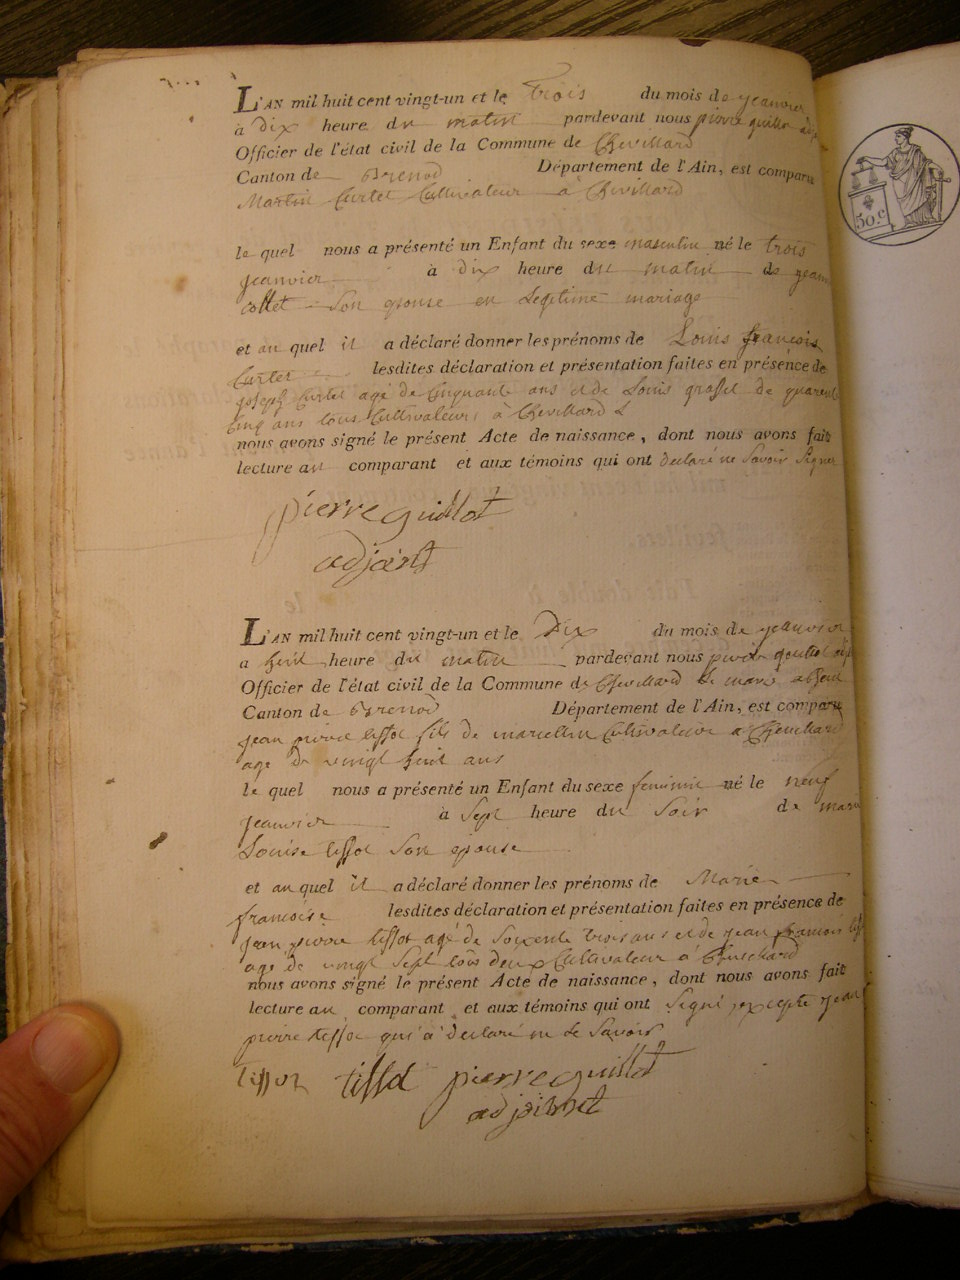 L'AN mil huit cent vingt-un et le trois du mois de jeanvier
à Dix heure du matin pardevant nous pierre guillot adj
Officier de l'état civil de la Commune de Chevillard
Canton de Brenod Département de l'Ain, est comparu
Martin Curtet Cultivateur a Chevillard
le quel nous a présenté un Enfant du sexe masculin né le trois
jeanvier à dix heure du matin de jean
collet son epouse en Legitime mariage
et au quel il a déclaré donner les prénoms de Louis françois
Curtet lesdites déclaration et présentation faites en présence de
joseph Curtet agé de Cinquante ans et de Louis de quarente
Cinq ans tous Cultivateurs à Chevillard
nous avons signé le présent Acte de naissance, dont nous avons fait
lecture au comparant et aux témoins qui ont declaré ne Savoir Signer
pierre guillot
adjoint
L'AN mil huit cent vingt-un et le Dix du mois de jeanvier
a huit heure du matin pardevant nous pierre guillot adj
Officier de l'état civil de la Commune de Chevillard le maire absent
Canton de Brenod Département de l'Ain, est comparu
jean pierre tissot fils de marcellin Cultivateur a Chevillard
agé de vingt huit ans
le quel nous a présenté un Enfant du sexe feminin né le neuf
jeanvier à Sept heure du Soir de marie
Louise tissot Son epouse
et au quel il a déclaré donner les prénoms de Marie
francoise lesdites déclaration et présentation faites en présence de
jean pierre tissot agé de Soixente trois ans et de jean francois tiss
agé de vingt Sept tous deux Cultivateur à Chevillard
nous avons signé le présent Acte de naissance, dont nous avons fait
lecture au comparant et aux témoins qui ont Signé excepte jean
pierre tissot qui a déclaré ne le Savoir
tissot tissot pierre guillot
adjoint
50.c